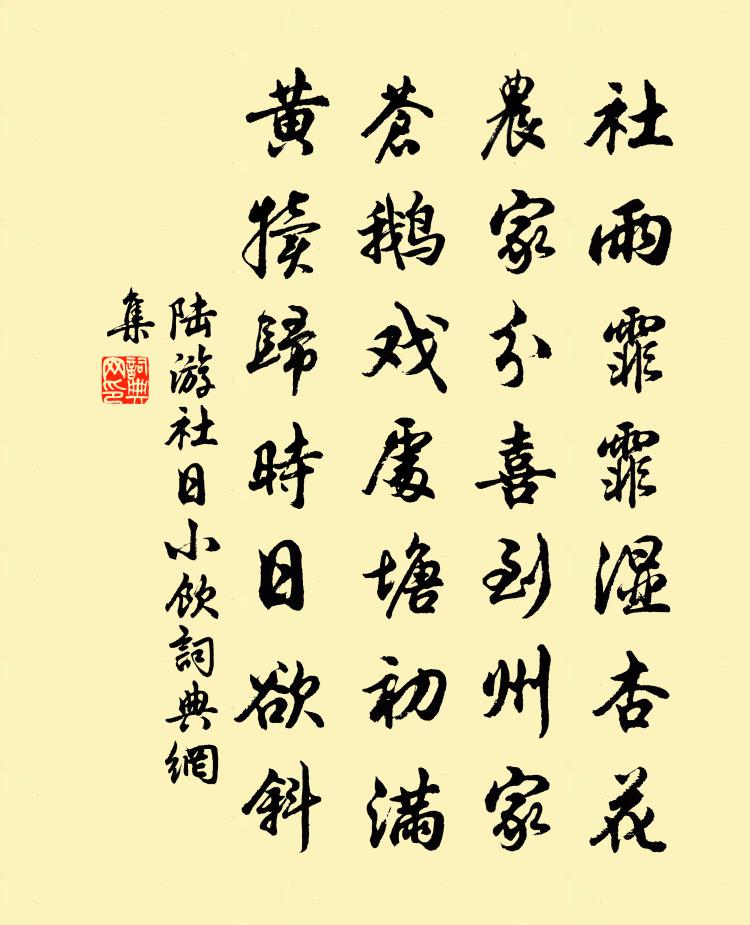 社雨霏霏湿杏花
農家分喜到州家
蒼鹅戏處塘初满
黃犢歸時日欲斜
陆游社日小飲詞典網
集
詞典
网印